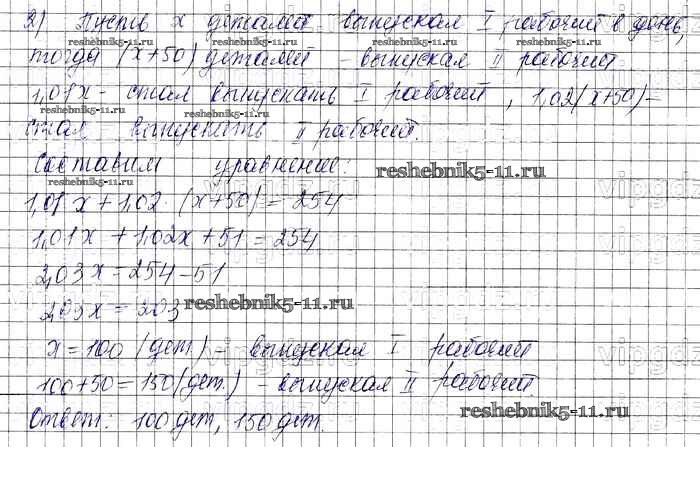 2) Пусть х деталей выпускал I рабочий в день,
тогда (х+50) деталей - выпускал II рабочий
1,01х - стал выпускать I рабочий, 1,02(х+50) -
стал выпускать II рабочий.
Составим уравнение:
1,01х + 1,02·(х+50) = 254
1,01х + 1,02х + 51 = 254
2,03х = 254 - 51
2,03х = 203
х = 100 (дет.) - выпускал I рабочий
100 + 50 = 150 (дет.) - выпускал II рабочий.
Ответ: 100 дет, 150 дет.
reshebnik5-11.ru
reshebnik5-11.ru
reshebnik5-11.ru
reshebnik5-11.ru
reshebnik5-11.ru
reshebnik5-11.ru
reshebnik5-11.ru